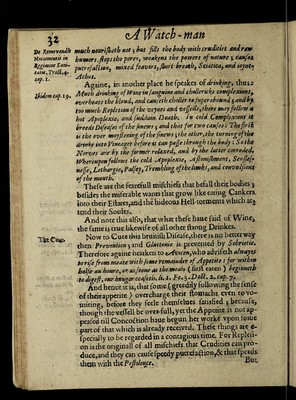 32
A Watch-man
De Removendis
Nocumentis in
Regimine Sani-
tatis, Troll. 4.
cap. 1.
much nourisheth not; but fills the body with crudities and raw
humors, stops the pores, weakns the powers of nature; causes
putrefaction, mixed feavers, short breath, Sciatica, and joynt-
Aches.
Ibidem cap. 19.
Againe, in another place he speakes of drinking, thus:
Much drinking of Wine in sanguine and cholericke complexions,
over heats the blood, and causeth choller to superabound; and by
too much Repletion of the veynes and vessells, there may follow a
hot Apoplexie, and suddain Death. In cold Complexions it
breeds Diseases of the sinews; and that for two causes: The first
is the over moystening of the sinews; the other, the turning of the
drinke into Vineager before it can passe through the body: So the
Nerves are by the former relaxed, and by the later corroded.
Whereupon follows the cold Apoplexie, Astonishment, Senslas-
nesse, Lethargie, Palsey, Trembling of the limbs, and convulsions
of the mouth.
These are the fearefull mischiefs that befall their bodies;
besides the miserable wants that grow like eating Cankers
into their Estates, and the hideous Hell-torments which at-
tend their Soules.
And note this also, that what these have said of Wine,
the same is true likewise of all other strong Drinkes.
The Cure.
Now to Cure this bruitish Disease, there is no better way
then Prevention; and Gluttonie is prevented by Sobrietie.
Therefore againe hearken to Avicen, who adviseth alwayes
to rise from meate with some remainder of Appetite; for within
halfe an houre, or as soone as the meate (first eaten) beginneth
to digest, our hunger ceaseth. &c. l. Fe. 3. Doll. 2. cap. 7.
And hence it is, that some (greedily following the sense
of their appetite) overcharge their stomacks even to vo-
miting, before they feele themselves satisfied; because,
though the vessell be over-full, yet the Appetite is not ap-
peased till Concoction have begun her worke upon some
part of that which is already received. These things are e-
specially to be regarded in a contagious time. For Repleti-
on is the originall of all mischiefs that Crudities can pro-
duce, and they can cause speedy putrefaction, & that speeds
them with the Pestilence.
But